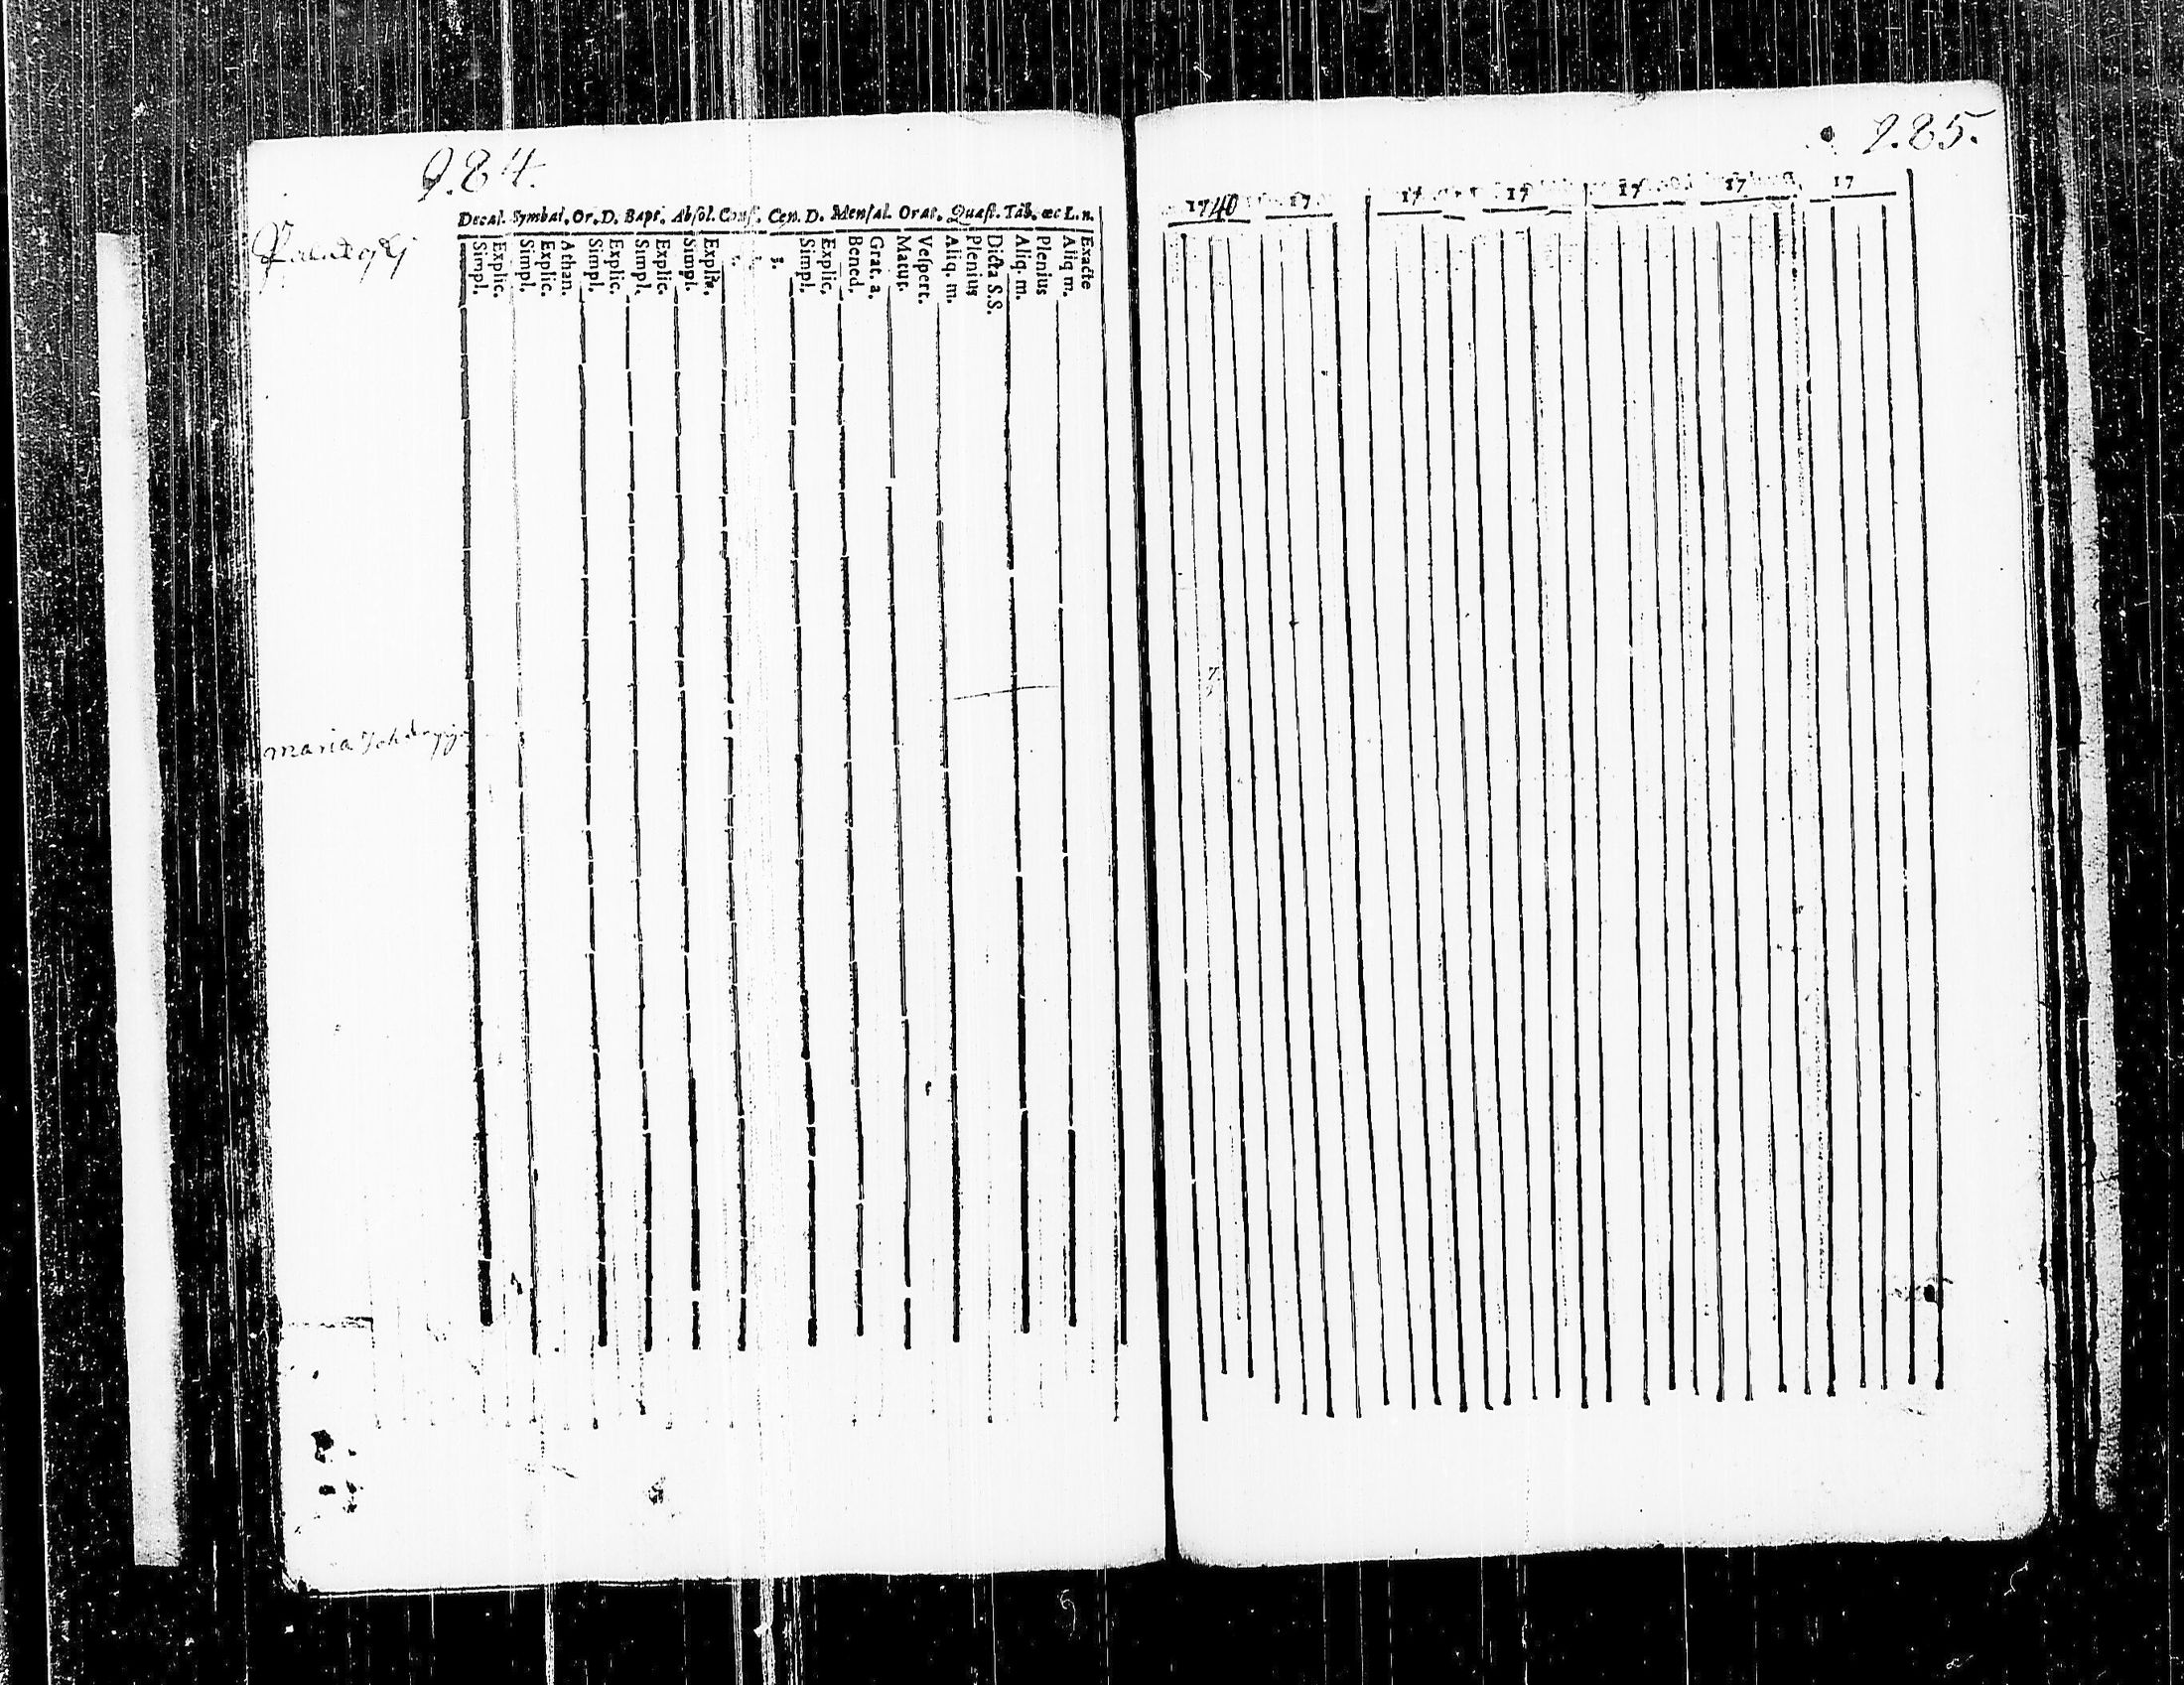 984.
Decal. Symbol. Or. D. Bapt. Absol. Conf. Cœn. D. Mensal. Orat. Quæst. Tab. œc L. n.
Simpl. Explic. Simpl. Explic. Athan. Simpl. Explic. Simpl. Explic. Simpl. Explic. 3. Simpl. Explic. Bened. Grat. a. Matut. Vespert. Aliq. m. Plenius Dicta S.S. Aliq. m. Plenius Aliq m. Exacte
maria
985.
1740 17 17 17 17 17 17